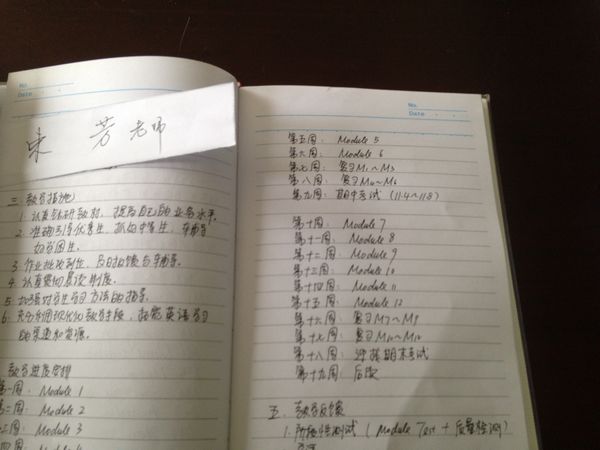 No.
Date
芳老师
三、教学措施
1. 认真钻研教材，提高自己的业务水平。
2. 准确引导优秀生，抓好中等生，辅导
如学困生。
3. 作业批改到位，及时反馈与辅导。
4. 认真落实晨读制度。
5. 加强对学生学习方法的指导。
6. 充分利用现代化教学手段，拓宽英语学习
的渠道和资源。
教学进度安排
第一周：Module 1
第二周：Module 2
三周：Module 3
四周：
No.
Date
第五周：Module 5
第六周：Module 6
第七周：复习M1～M3
第八周：复习M4～M6
第九周：期中考试（11.4～11.8）
第十周：Module 7
第十一周：Module 8
第十二周：Module 9
第十三周：Module 10
第十四周：Module 11
第十五周：Module 12
第十六周：复习M7～M9
第十七周：复习M10～M12
第十八周：迎接期末考试
第十九周：后取
五、教学反馈
1. 阶段性测试（Module Test + 质量检测）